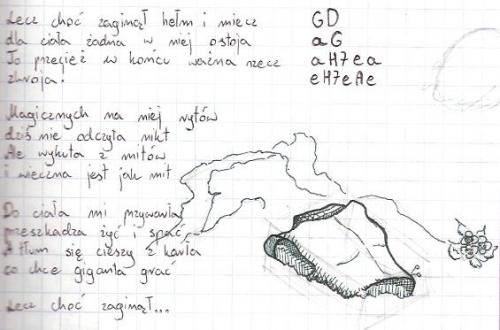 Lecz choć zaginął hełm i miecz GD
dla ciała żadna w niej ostoja aG
To przecież w końcu ważna rzecz aH7ea
zbroja! eH7eAe
Magicznych na niej rytów
dziś nie odczyta nikt
Ale wykuta z mitów
i wieczna jest jak mit
Do ciała mi przywarła
przeszkadza żyć i spać
A tłum się cieszy z karła
co chce giganta grać
Lecz choć zaginął...